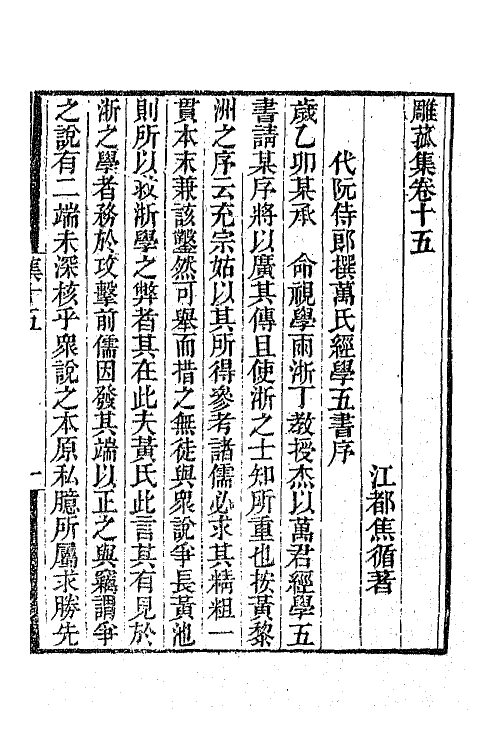 雕菰集卷十五
江都焦循著
代阮侍郎撰萬氏經學五書序
歲乙卯某承　命視學兩浙丁教授杰以萬君經學五
書請某序將以廣其傳且使浙之士知所重也按黃黎
洲之序云充宗姑以其所得參考諸儒必求其精粗一
貫本末兼該鑿然可舉而措之無徒與眾說爭長黃池
則所以救浙學之弊者其在此夫黃氏此言其有見於
浙之學者務於攻擊前儒因發其端以正之與竊謂爭
之說有二端未深核乎眾說之本原私臆所屬求勝先
集十五
一